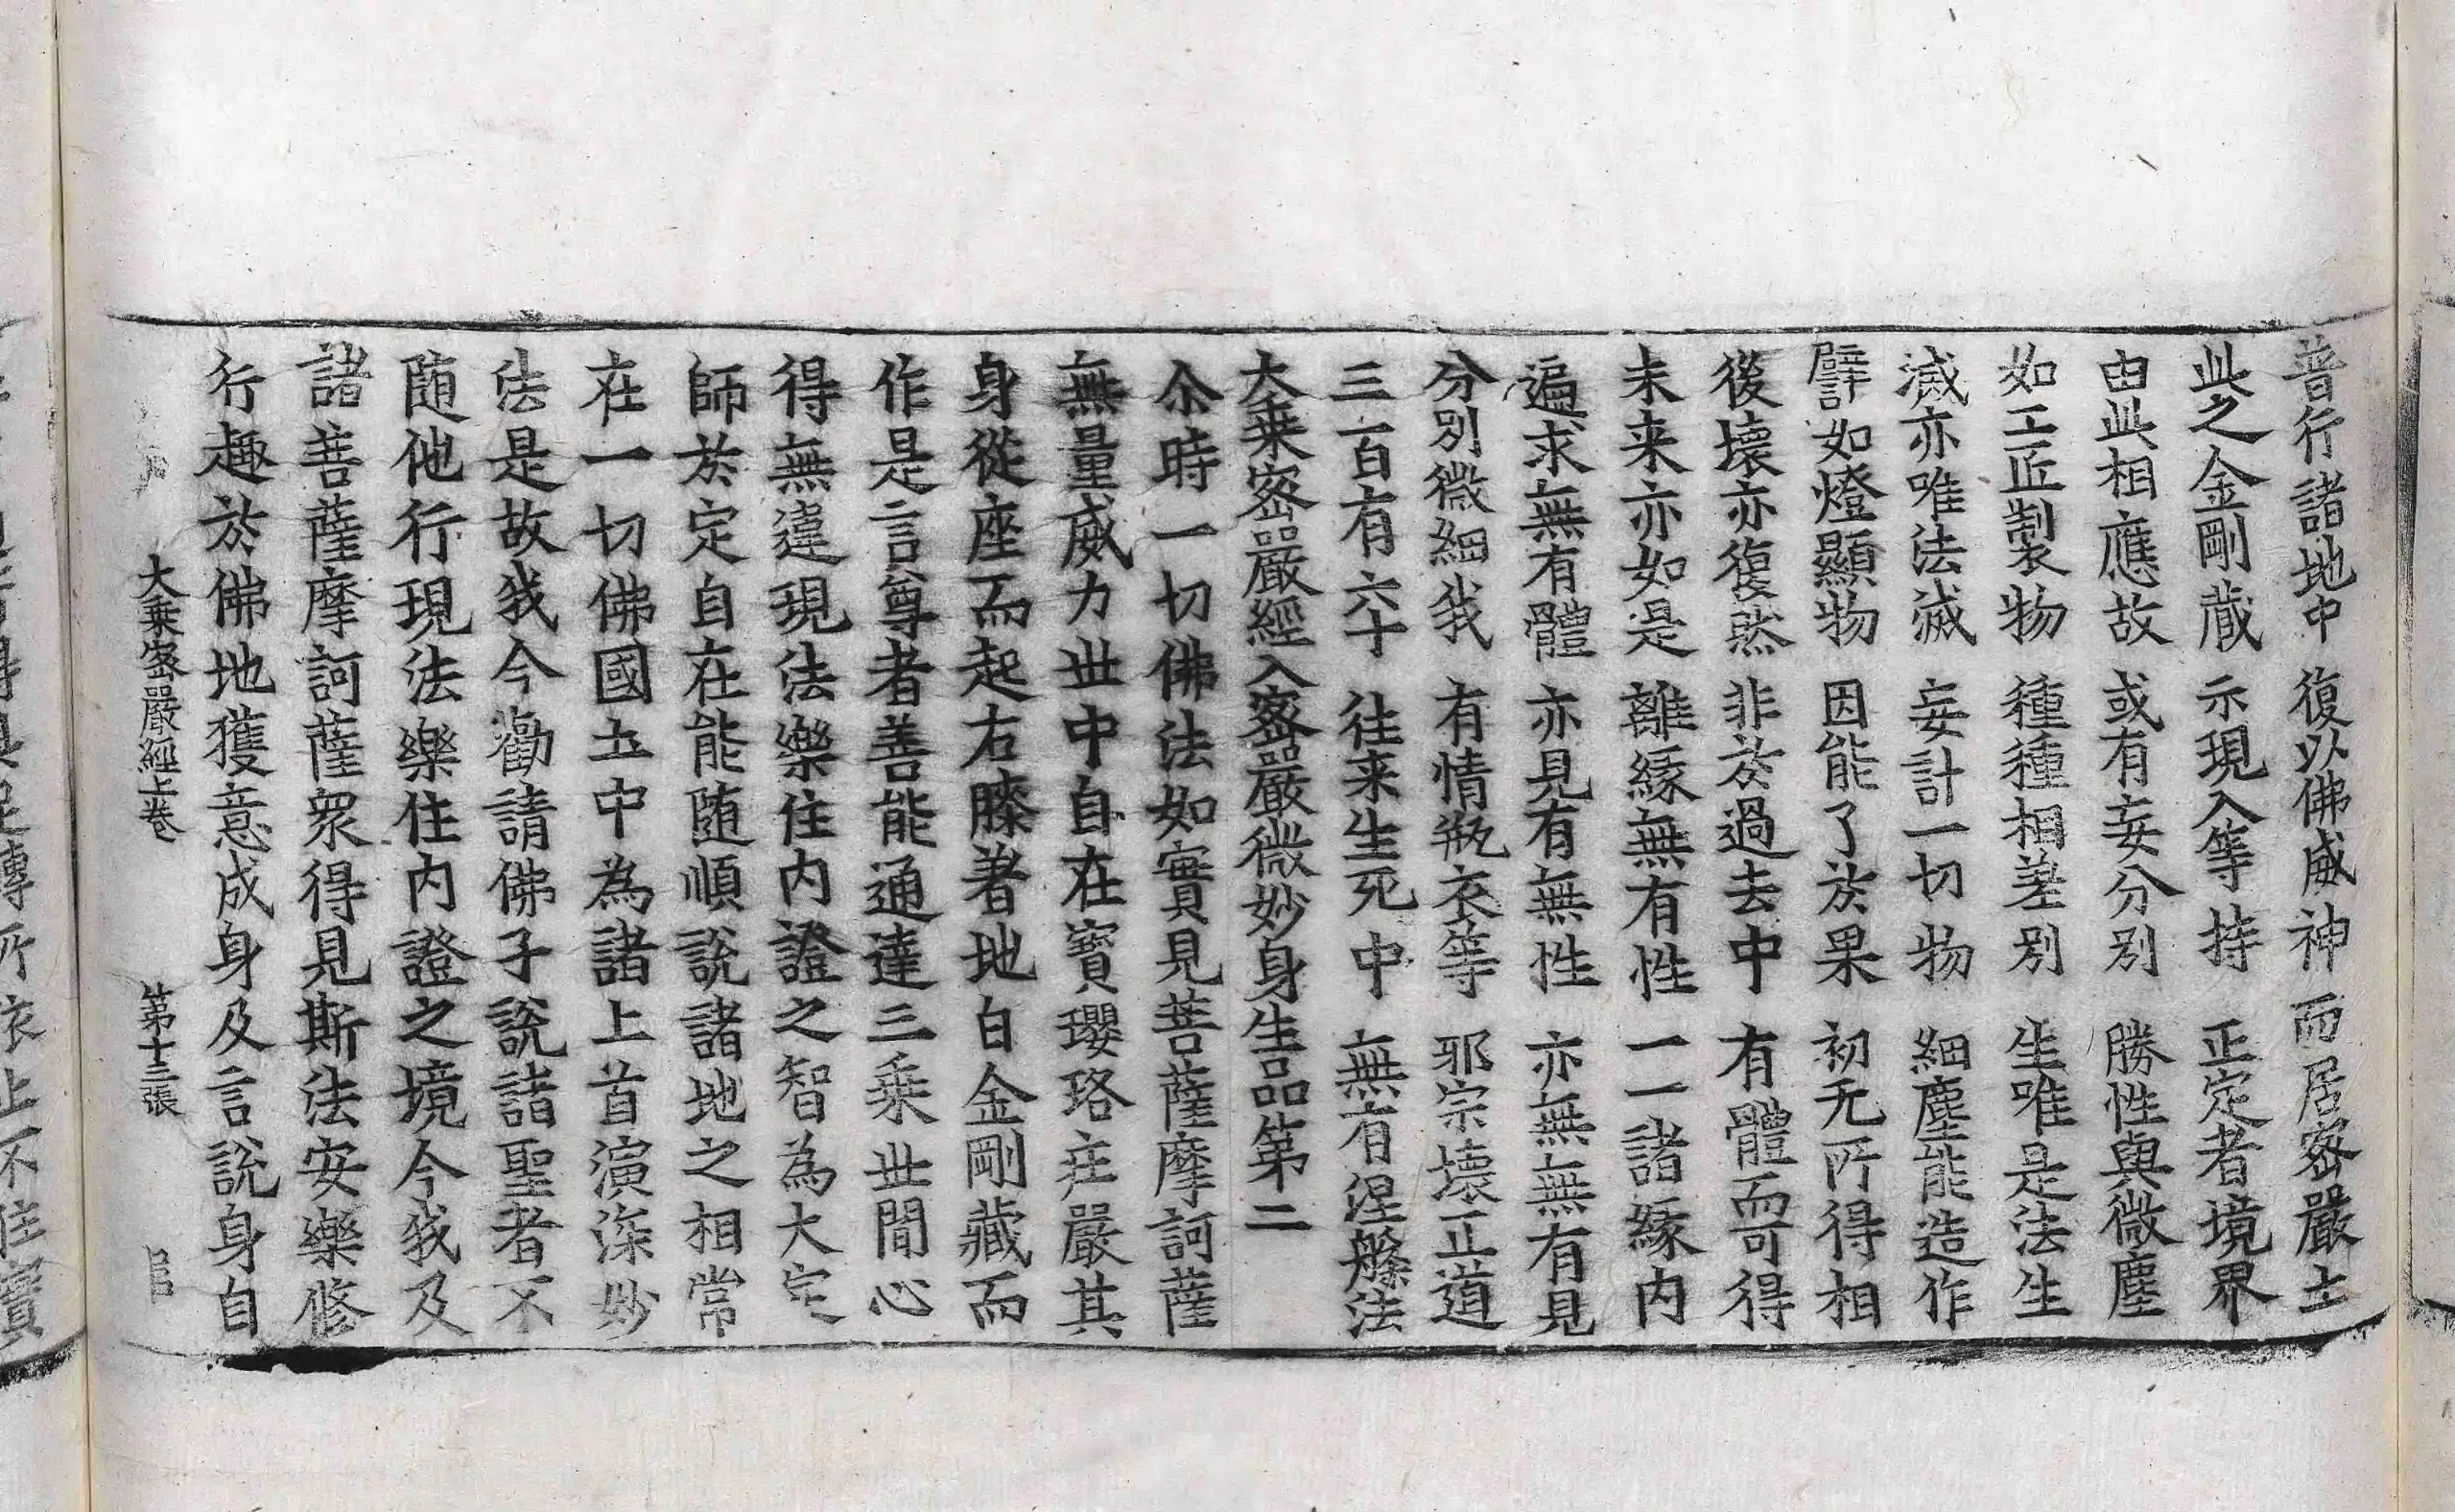 普行諸地中　復以佛威神　而居密嚴土
此之金剛藏　示現入等持　正定者境界
由此相應故　或有妄分別　勝性與微塵
如工匠製物　種種相差別　生唯是法生
滅亦唯法滅　妄計一切物　細塵能造作
譬如燈顯物　因能了於果　初无所得相
後壞亦復然　非於過去中　有體而可得
未来亦如是　離緣無有性　一一諸緣内
遍求無有體　亦見有無性　亦無無有見
分別微細我　有情瓶衣等　邪宗壞正道
三百有六十　往来生死中　無有涅槃法
大乗密嚴經入密嚴微妙身生品第二
尒時一切佛法如實見菩薩摩訶薩
無量威力世中自在寶瓔珞庄嚴其
身從座而起右膝著地白金剛藏而
作是言尊者善能通達三乗世間心
得無違現法樂住内證之智為大定
師於定自在能随順說諸地之相常
在一切佛國土中為諸上首演深妙
法是故我今勸請佛子說諸聖者不
随他行現法樂住内證之境令我及
諸菩薩摩訶薩衆得見斯法安樂修
行趣於佛地獲意成身及言說身自
大乗密嚴經上巻　第十三張